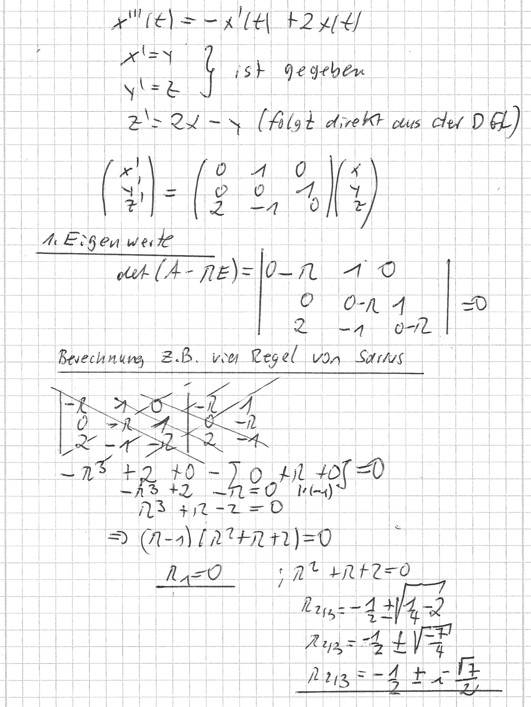 x'''(t) = -x'(t) + 2x(t)
x' = y
y' = z } ist gegeben
z' = 2x - y (folgt direkt aus der DGL)
(x' y' z') = (0 1 0 0 0 1 2 -1 0) (x y z)
1. Eigenwerte
det(A - λE) = |0-λ 1 0
0 0-λ 1
2 -1 0-λ| = 0
Berechnung z.B. über Regel von Sarrus
|-λ 1 0 | -λ 1
0 -λ 1 | 0 -λ
2 -1 -λ | 2 -1
-λ³ + 2 + 0 - [0 + λ + 0] = 0
-λ³ + 2 - λ = 0 |·(-1)
λ³ + λ - 2 = 0
⇒ (λ-1)(λ² + λ + 2) = 0
λ₁ = 0 ; λ² + λ + 2 = 0
λ₂,₃ = -1/2 ± √(1/4 - 2)
λ₂,₃ = -1/2 ± √(-7/4)
λ₂,₃ = -1/2 ± i·√7/2